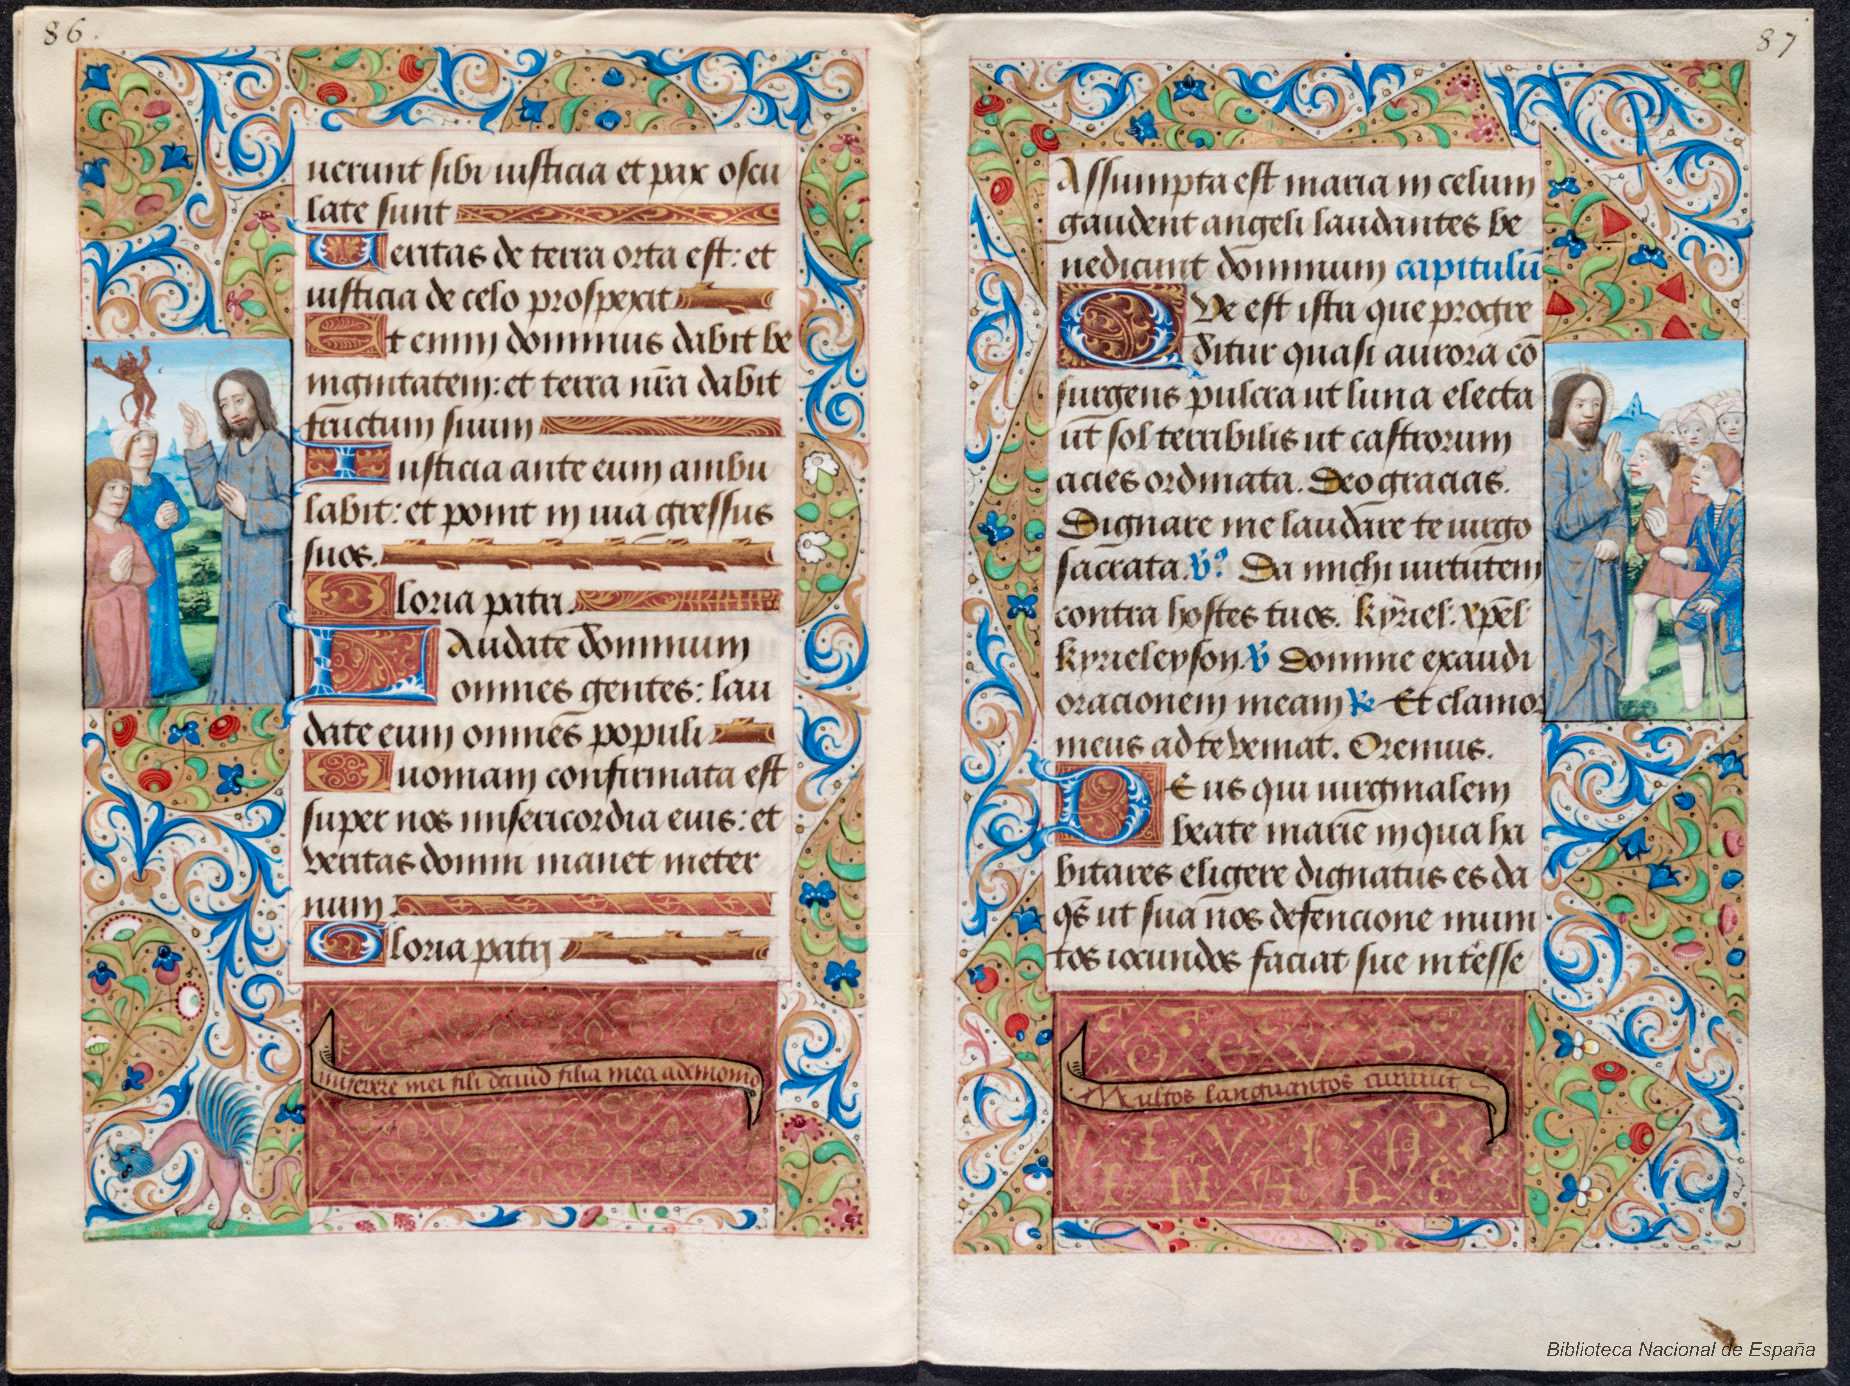 86.
uerunt sibi iusticia et pax oscu
late sunt
Ueritas de terra orta est: et
iusticia de celo prospexit
Et enim dominus dabit be
nignitatem: et terra nr̄a dabit
fructum suum
Iusticia ante eum ambu
labit: et ponit in uia gressus
suos.
Gloria patri.
Laudate dominum
omnes gentes: lau
date eum omnes populi
Quoniam confirmata est
super nos misericordia eius: et
veritas domini manet ineter
num.
Gloria patri
miserere mei fili dauid filia mea a demonio
87
Assumpta est maria in celum
gaudent angeli laudantes be
nedicunt dominum capitulū
Que est ista que progre
ditur quasi aurora cō
surgens pulcra ut luna electa
ut sol terribilis ut castrorum
acies ordinata. Deo gracias.
Dignare me laudare te uirgo
sacrata. V̄ꝰ. Da michi uirtutem
contra hostes tuos. kyriel: xp̄el
kyrieleyson V̄ Domine exaudi
orationem meam R̄ Et clamor
meus ad te veniat. Oremus.
Deus qui uirginalem
beate marie in qua ha
bitares eligere dignatus es da
qs̄ ut sua nos defencione muni
tos iocundos faciat sue intēsse
Multos languantos curuut
Biblioteca Nacional de España